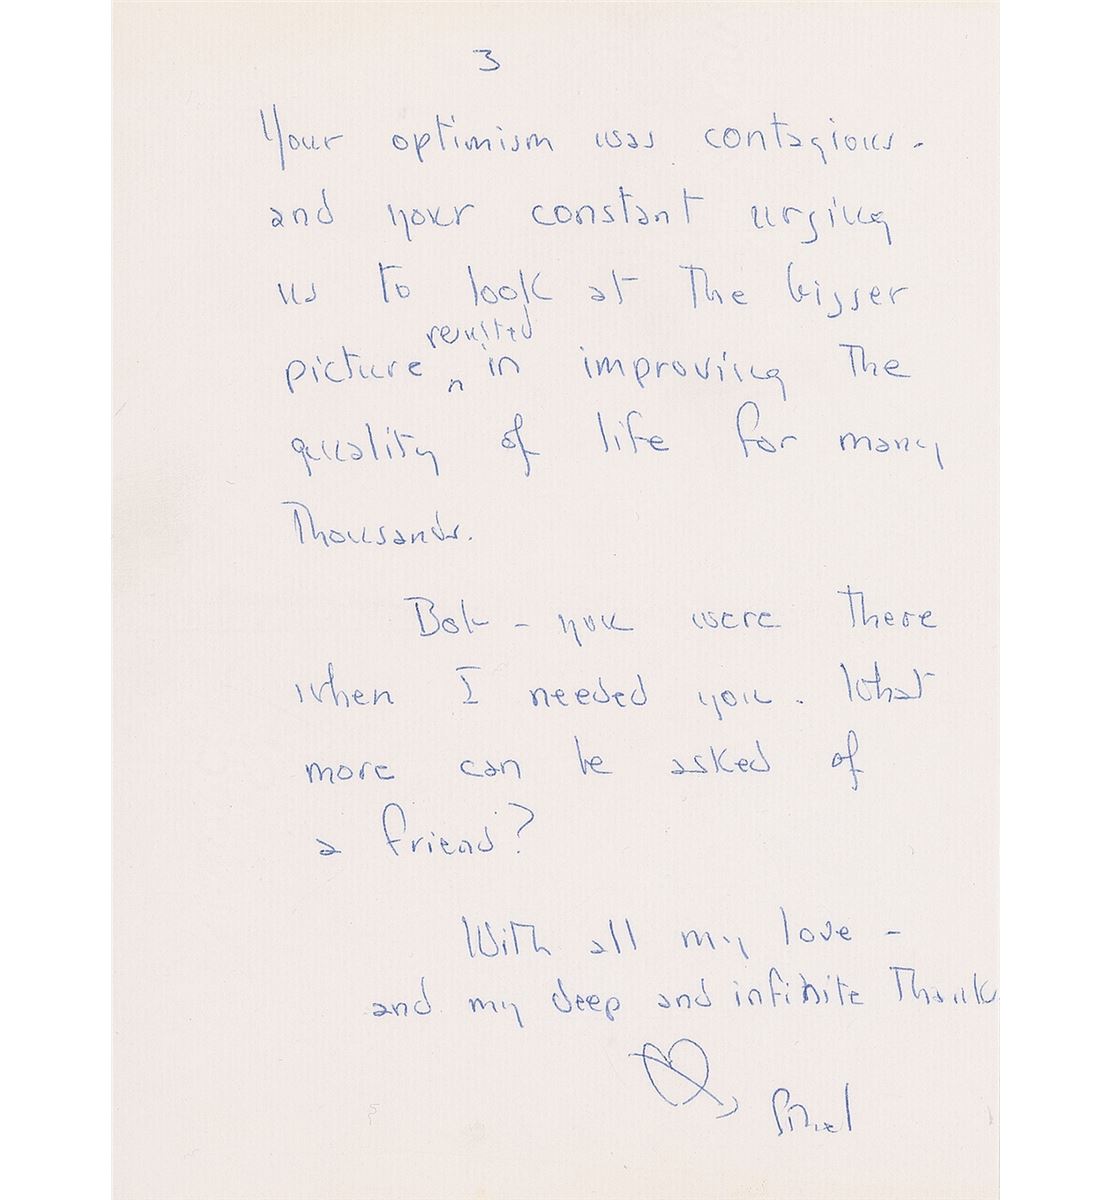 3
Your optimism was contagious -
and your constant urging
us to look at The bigger
resulted
picture ^ in improving The
quality of life for many
Thousands.
Bob - you were There
when I needed you. What
more can be asked of
a friend?
With all my love -
and my deep and infinite Thank